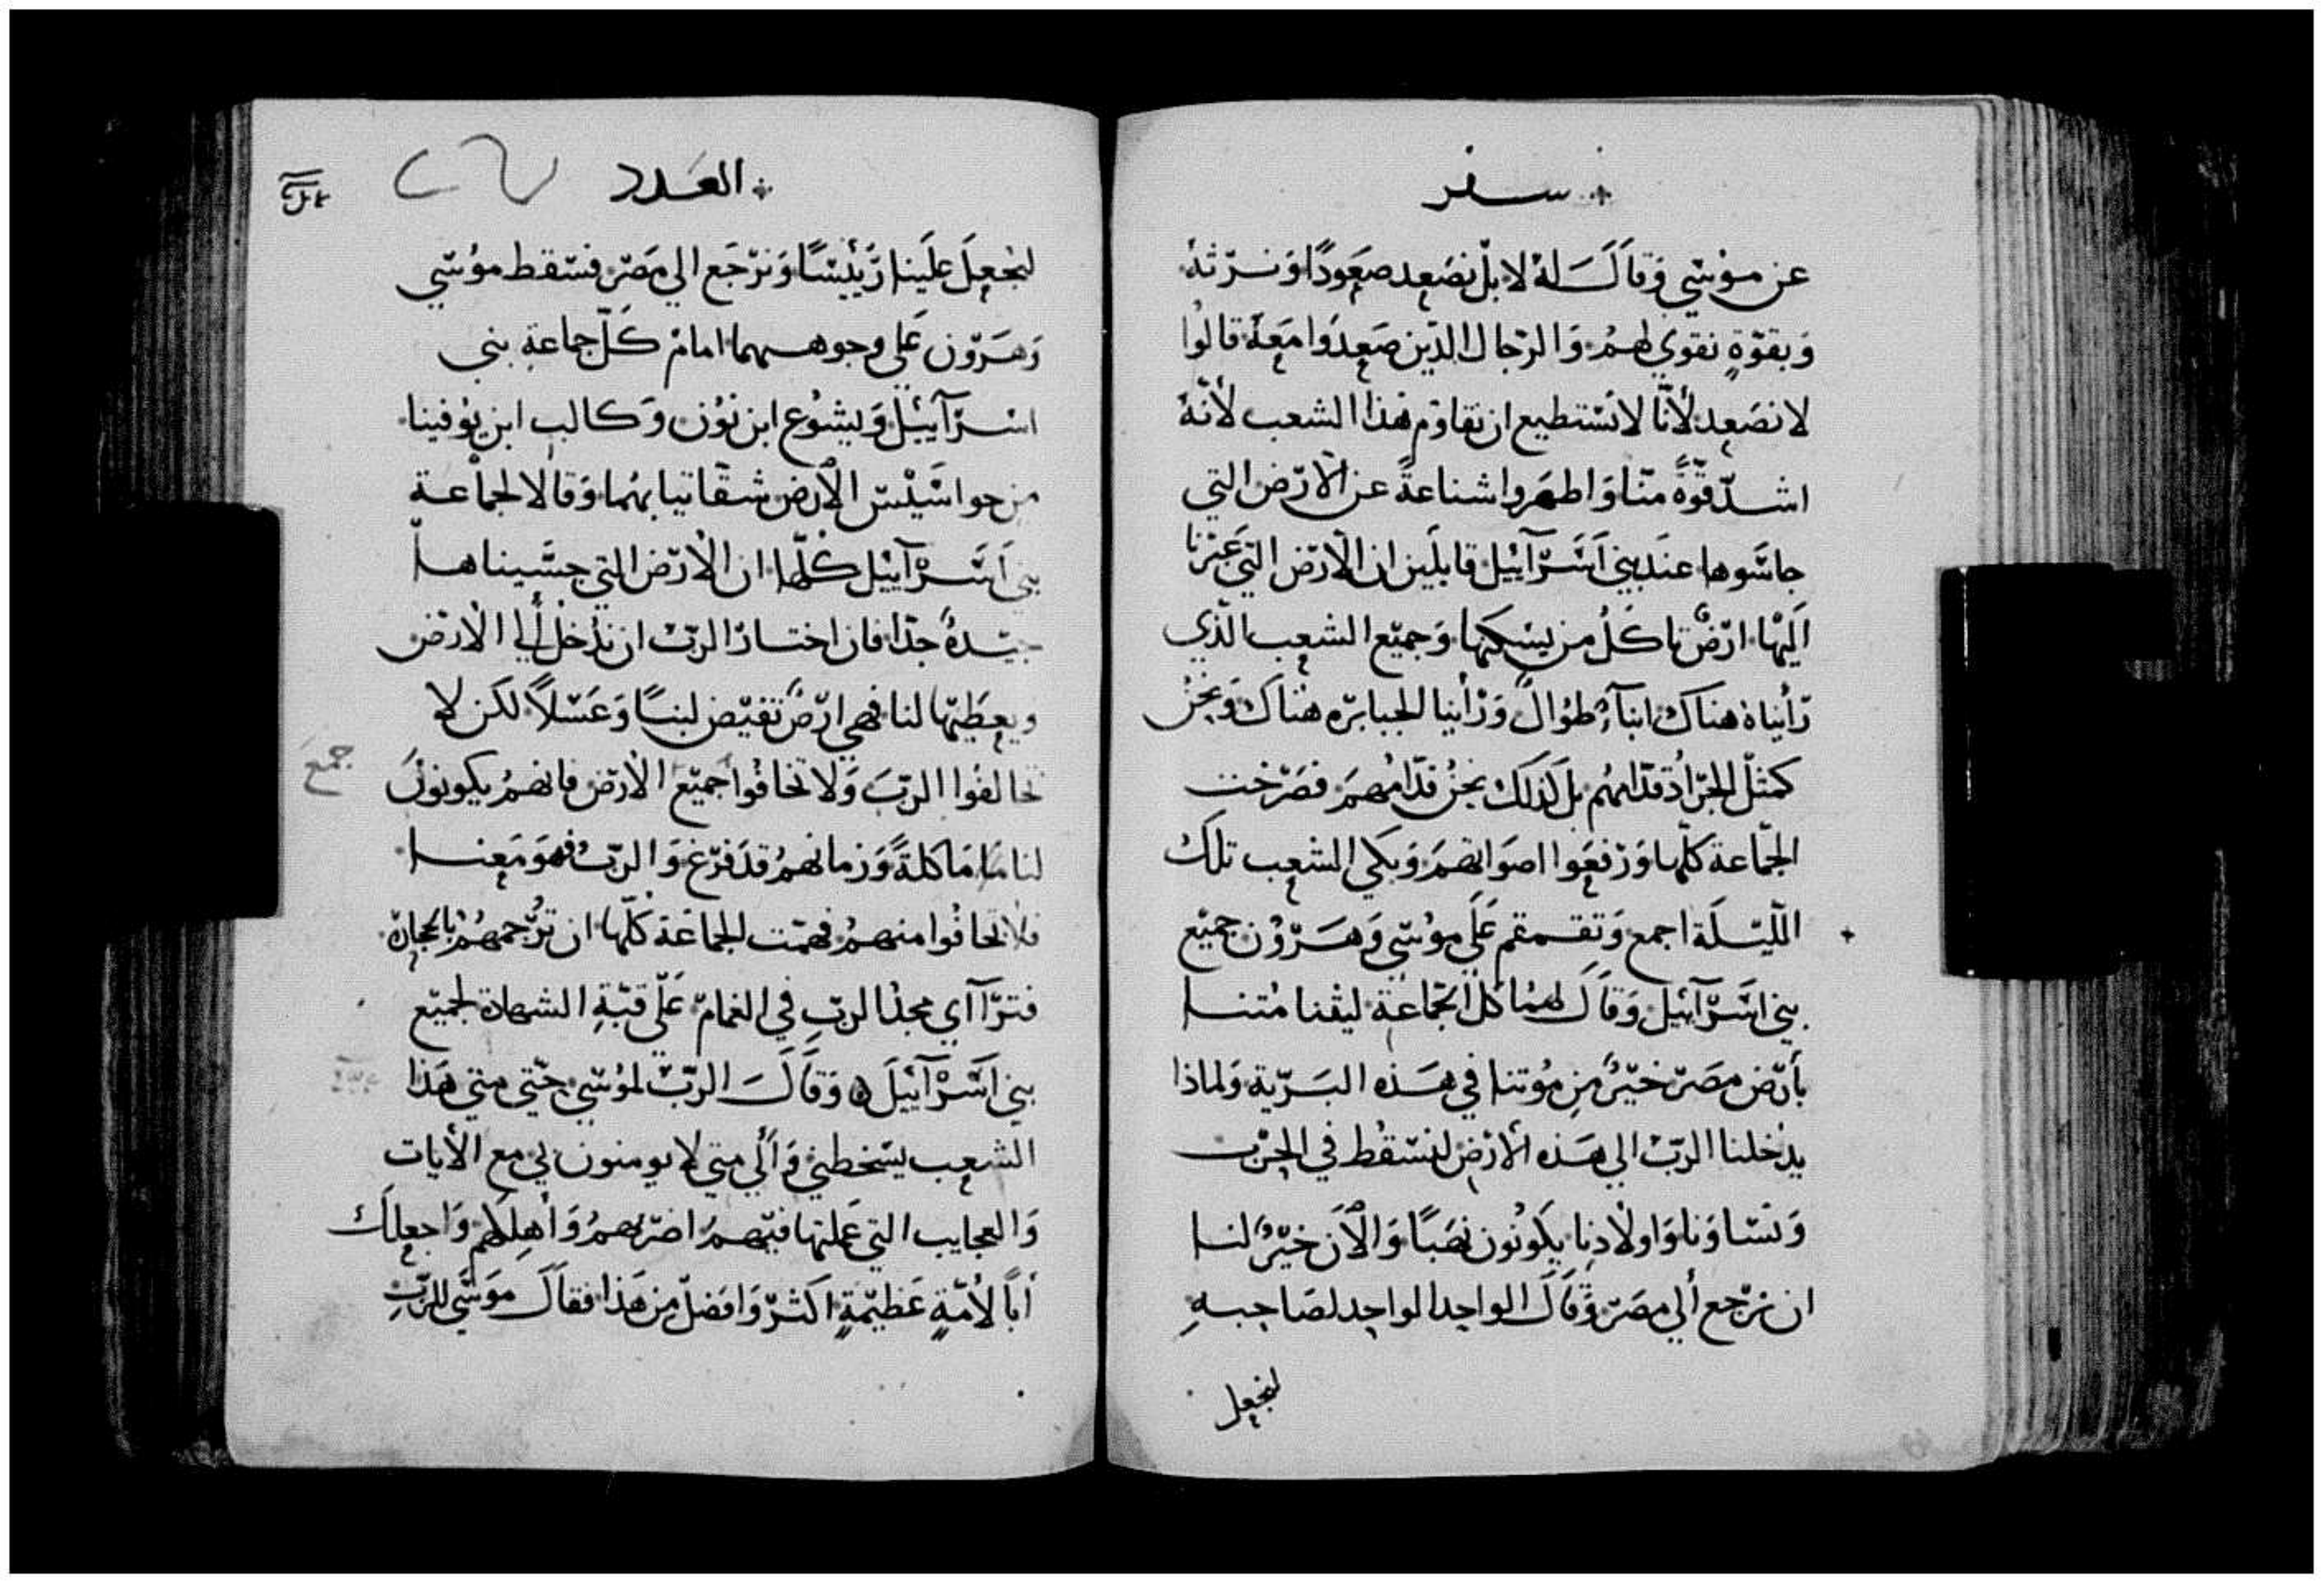 سفر
عن موسي وقال له لا بل نصعد صعودًا ونرثه
وبقوّةٍ نقوي لهم والرجال الذين صعدوا معه قالوا
لا نصعد لأنّا لا نستطيع ان نقاوم هذا الشعب لأنّه
اشدّ قوّةً منّا واظهروا شناعةً عن الأرض التي
جاسّوها عند بني اسرآييل قايلين ان الأرض التي عبرنا
اليها ارضٌ تاكل من يسكنها وجميع الشعب الذي
رأيناه هناك ابنآء طوال ورأينا الجبابره هناك ونحن
كمثل الجراد قدّامهم بل كذلك نحن قدّامهم فصرخت
الجماعة كلّها ورفعوا اصواتهم وبكي الشعب تلك
الليلة اجمع وتقمقم علي موسي وهرون جميع
بني اسرآييل وقال لهما كل الجماعة ليتنا متنا
بأرض مصر خيرٌ من موتنا في هذه البرّية ولماذا
يدخلنا الربّ الي هذه الأرض لنسقط في الحرب
ونساونا واولادنا يكونون نهبًا والآن خيرٌ لنا
ان نرجع ألي مصر وقال الواحد الواحد لصاحبهِ
لنجعل
العدد
لنجعل علينا رئيسًا ونرجع الي مصر فسقط موسي
وهرون علي وجوههما امام كل جماعة بني
اسرآييل ويشوع ابن نون وكالب ابن يوفينا
من جواسيس الأرض شقّا ثيابهما وقالا لجماعة
بني اسرآييل كلّها ان الأرض التي جسّيناها
جيّدةٌ جدّا فان اختارنا الربّ ان ندخل ألي الأرض
ويعطيها لنا فهي ارضٌ تفيض لبنًا وعسلاً لكن لا
تخالفوا الربّ ولا تخافوا جميع الأرض فانهم يكونون
جمع
لنا ماكلةً وزمانهم قد فرغ والربّ فهو معنا
فلا تخافوا منهم فهمّت الجماعة كلّها ان ترجمهم بالحجارة
فترآاي مجد الربّ في الغمام علي قبّةِ الشهادة لجميع
بني اسرآييل وقال الربّ لموسي حتّي متي هذا
الشعب يسخطني وألي متي لا يومنون بي مع الأيات
والعجايب التي عملتها فيهم اضربهم وأهلكهم واجعلك
أبًا لأمّةٍ عظيمةٍ اكثر وافضل من هذا فقال موسي للربّ